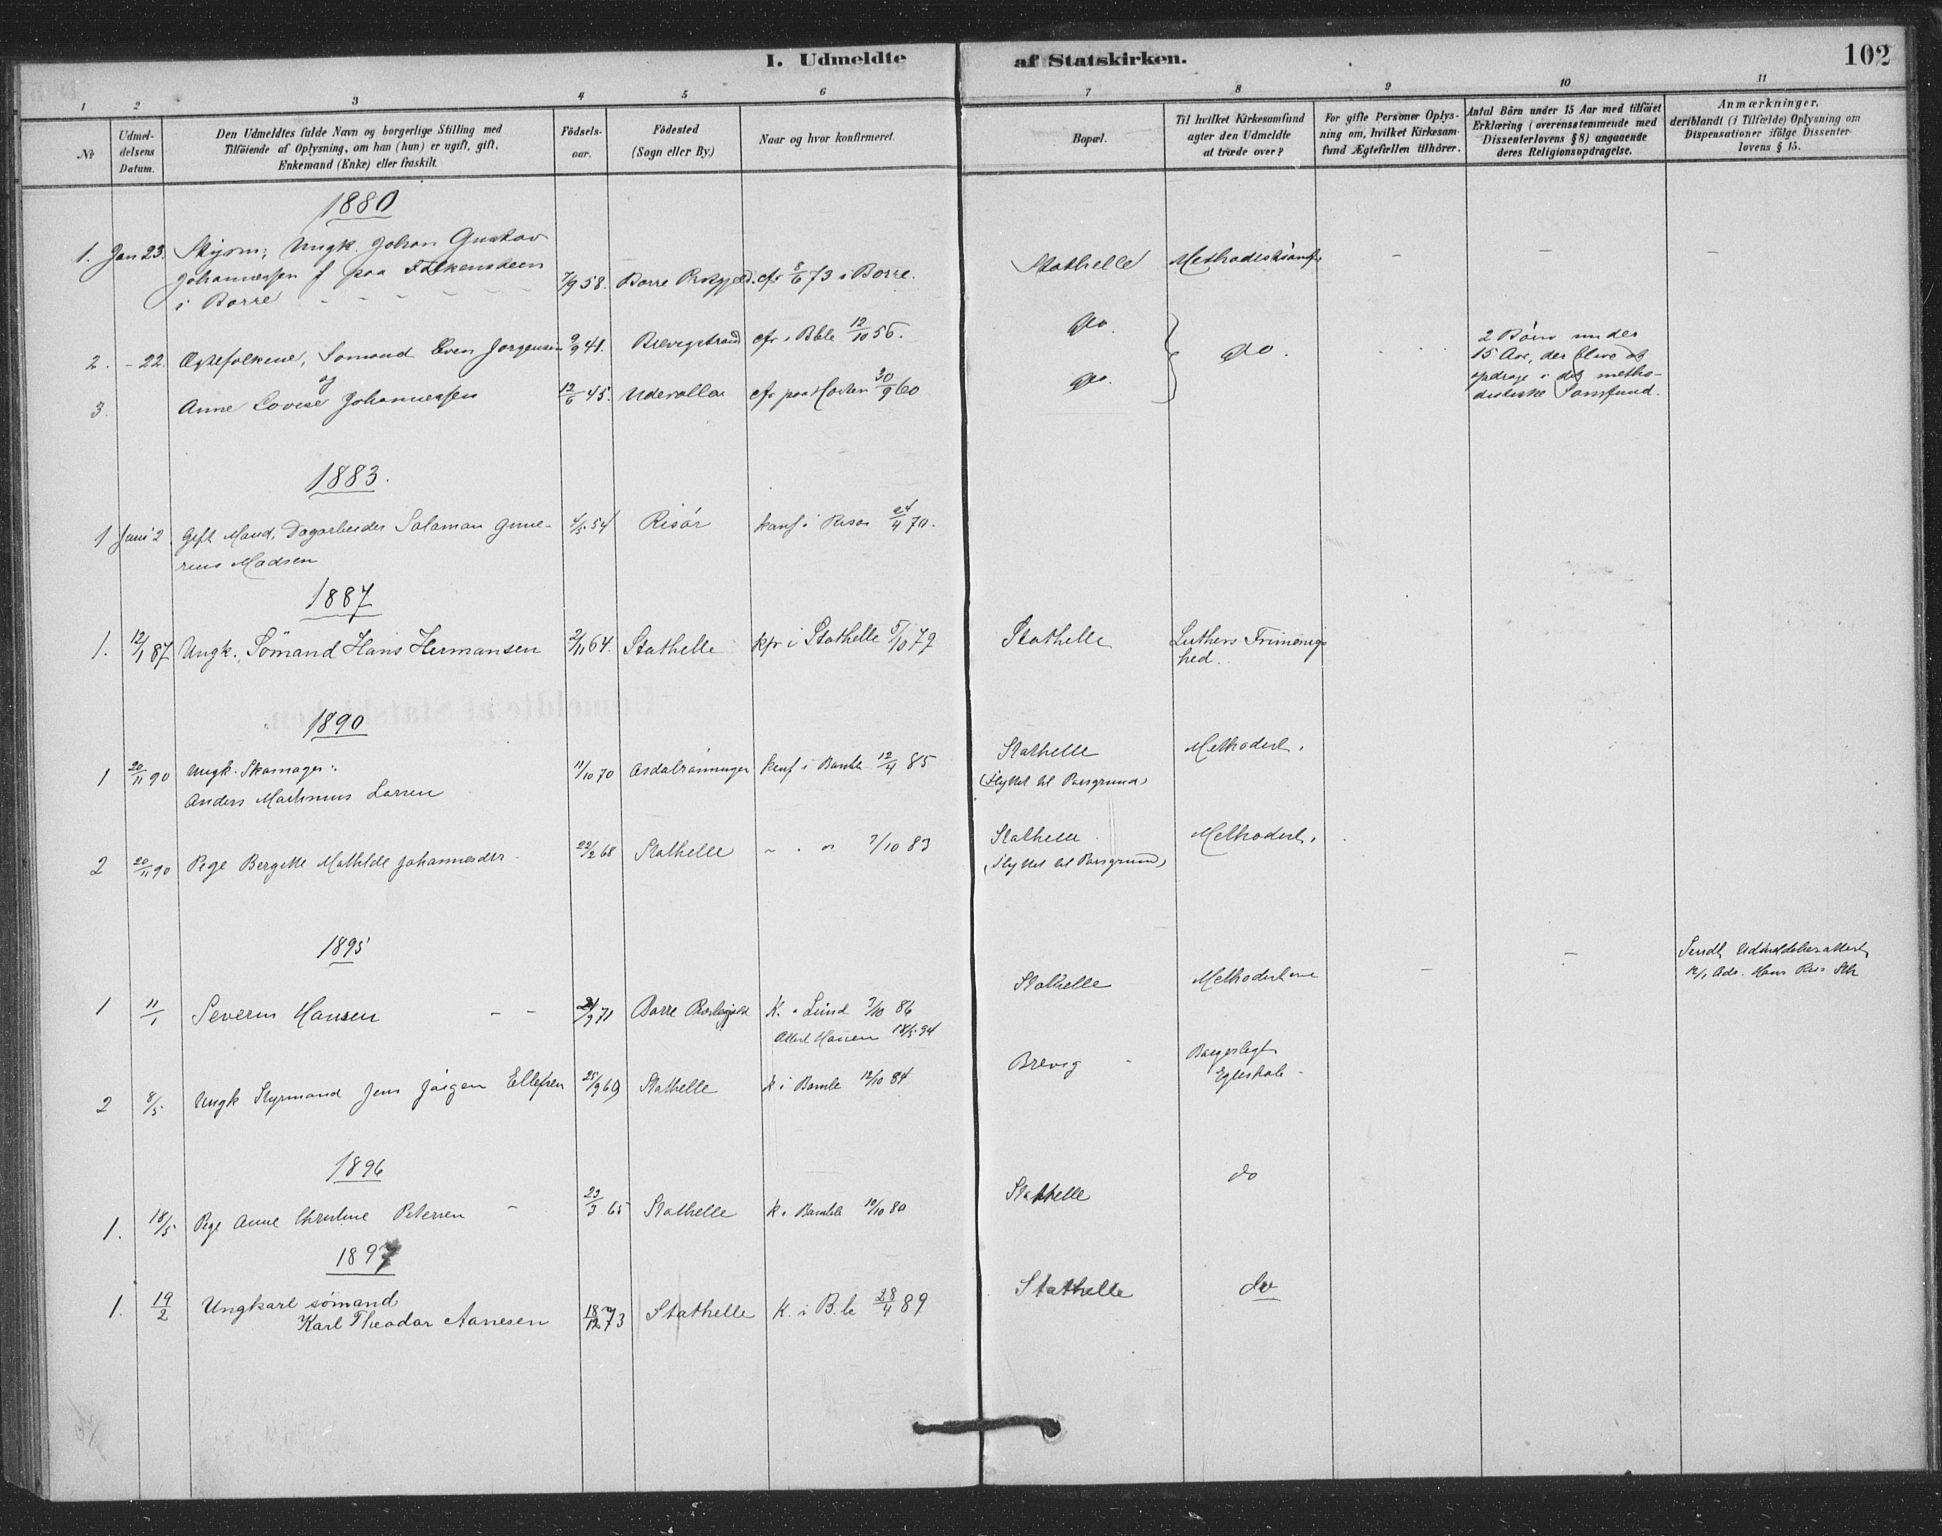 I. Udmeldte af Statskirken. 102
1 2 3 4 5 6 7 8 9 10 11
No
Udmel-
delsens
Datum.
Den Udmeldtes fulde Navn og borgerlige Stilling med
Tilföiende af Oplysning, om han (hun) er ugift, gift,
Enkemand (Enke) eller fraskilt.
Födsels-
aar.
Födested
(Sogn eller By)
Naar og hvor konfirmeret.
Bopæl.
Til hvilket Kirkesamfund
agter den Udmeldte
at træde over?
For gifte Personer Oplys-
ning om, hvilket Kirkesam-
fund Ægtefællen tilhörer.
Antal Börn under 15 Aar med tilföiet
Erklæring (overensstemmende med
Dissenterlovens § 8) angaaende
deres Religionsopdragelse.
Anmærkninger,
deriblandt (i Tilfælde) Oplysning om
Dispensationer ifölge Dissenter-
lovens § 15.
1880
1. Jan 23. Ungk. Johan Gustav
Johannessen f paa Falkensteen
i Borre 7/9 58. Borre cfr 8/6 73 i Borre. Stathelle
2. - 22. Ægtefolkene, Sömand Even Jorgensen 9/9 41. Brevigstrand cfr i Bble 12/10 56. do. do.
og
3. Anne Lovise Johannessen 12/6 45. Udevalla cfr paa 30/9 60 do.
2 Börn under
15 Aar, der blive
opdrage i det metho-
distiske Samfund.
1883.
1 Juni 2 Gift Mand, Dagarbeider Salamon Gune- 4/5 54 Risör konf i Risör 24/4 70.
rius Madsen
1887
1. 12/1 87 Ungk. Sömand Hans Hermansen 2/11 64. Stathelle kfr i Stathelle 5/10 79 Stathelle Luthers Frimenig-
hed.
1890
1 20/11 90 Ungk. Skomager 11/10 70 konf i Bamble 12/4 85 Stathelle Methodist.
Anders Martinius Larsen (flyttet til Porsgrund)
2 20/11 90 Pige Bergitte Mathilde Johannesdtr 22/2 68 Stathelle 7/10 83 Stathelle Methodist.
(flyttet til Porsgrund)
1895
1 11/1 Severin Hansen 9 71 Borre K. i Lund 3/10 86 Stathelle Methodisterne
Attest 18/5 94
Sendt Udmeldelsesattest
2 8/5 Ungk Styrmand Jens Jörgen Ellefsen 25/9 69 Stathelle K i Bamle 12/10 84 Brevig
1896
1. 18/5 Pige Anne Christine Petersen 23/3 65 Stathelle K i Bamble 10/10 80 Stathelle do
1897
1. 19/2 Ungkarl sömand
Karl Theodor Aanesen 18/12 73 Stathelle K. i B.le 28/4 89 Stathelle do